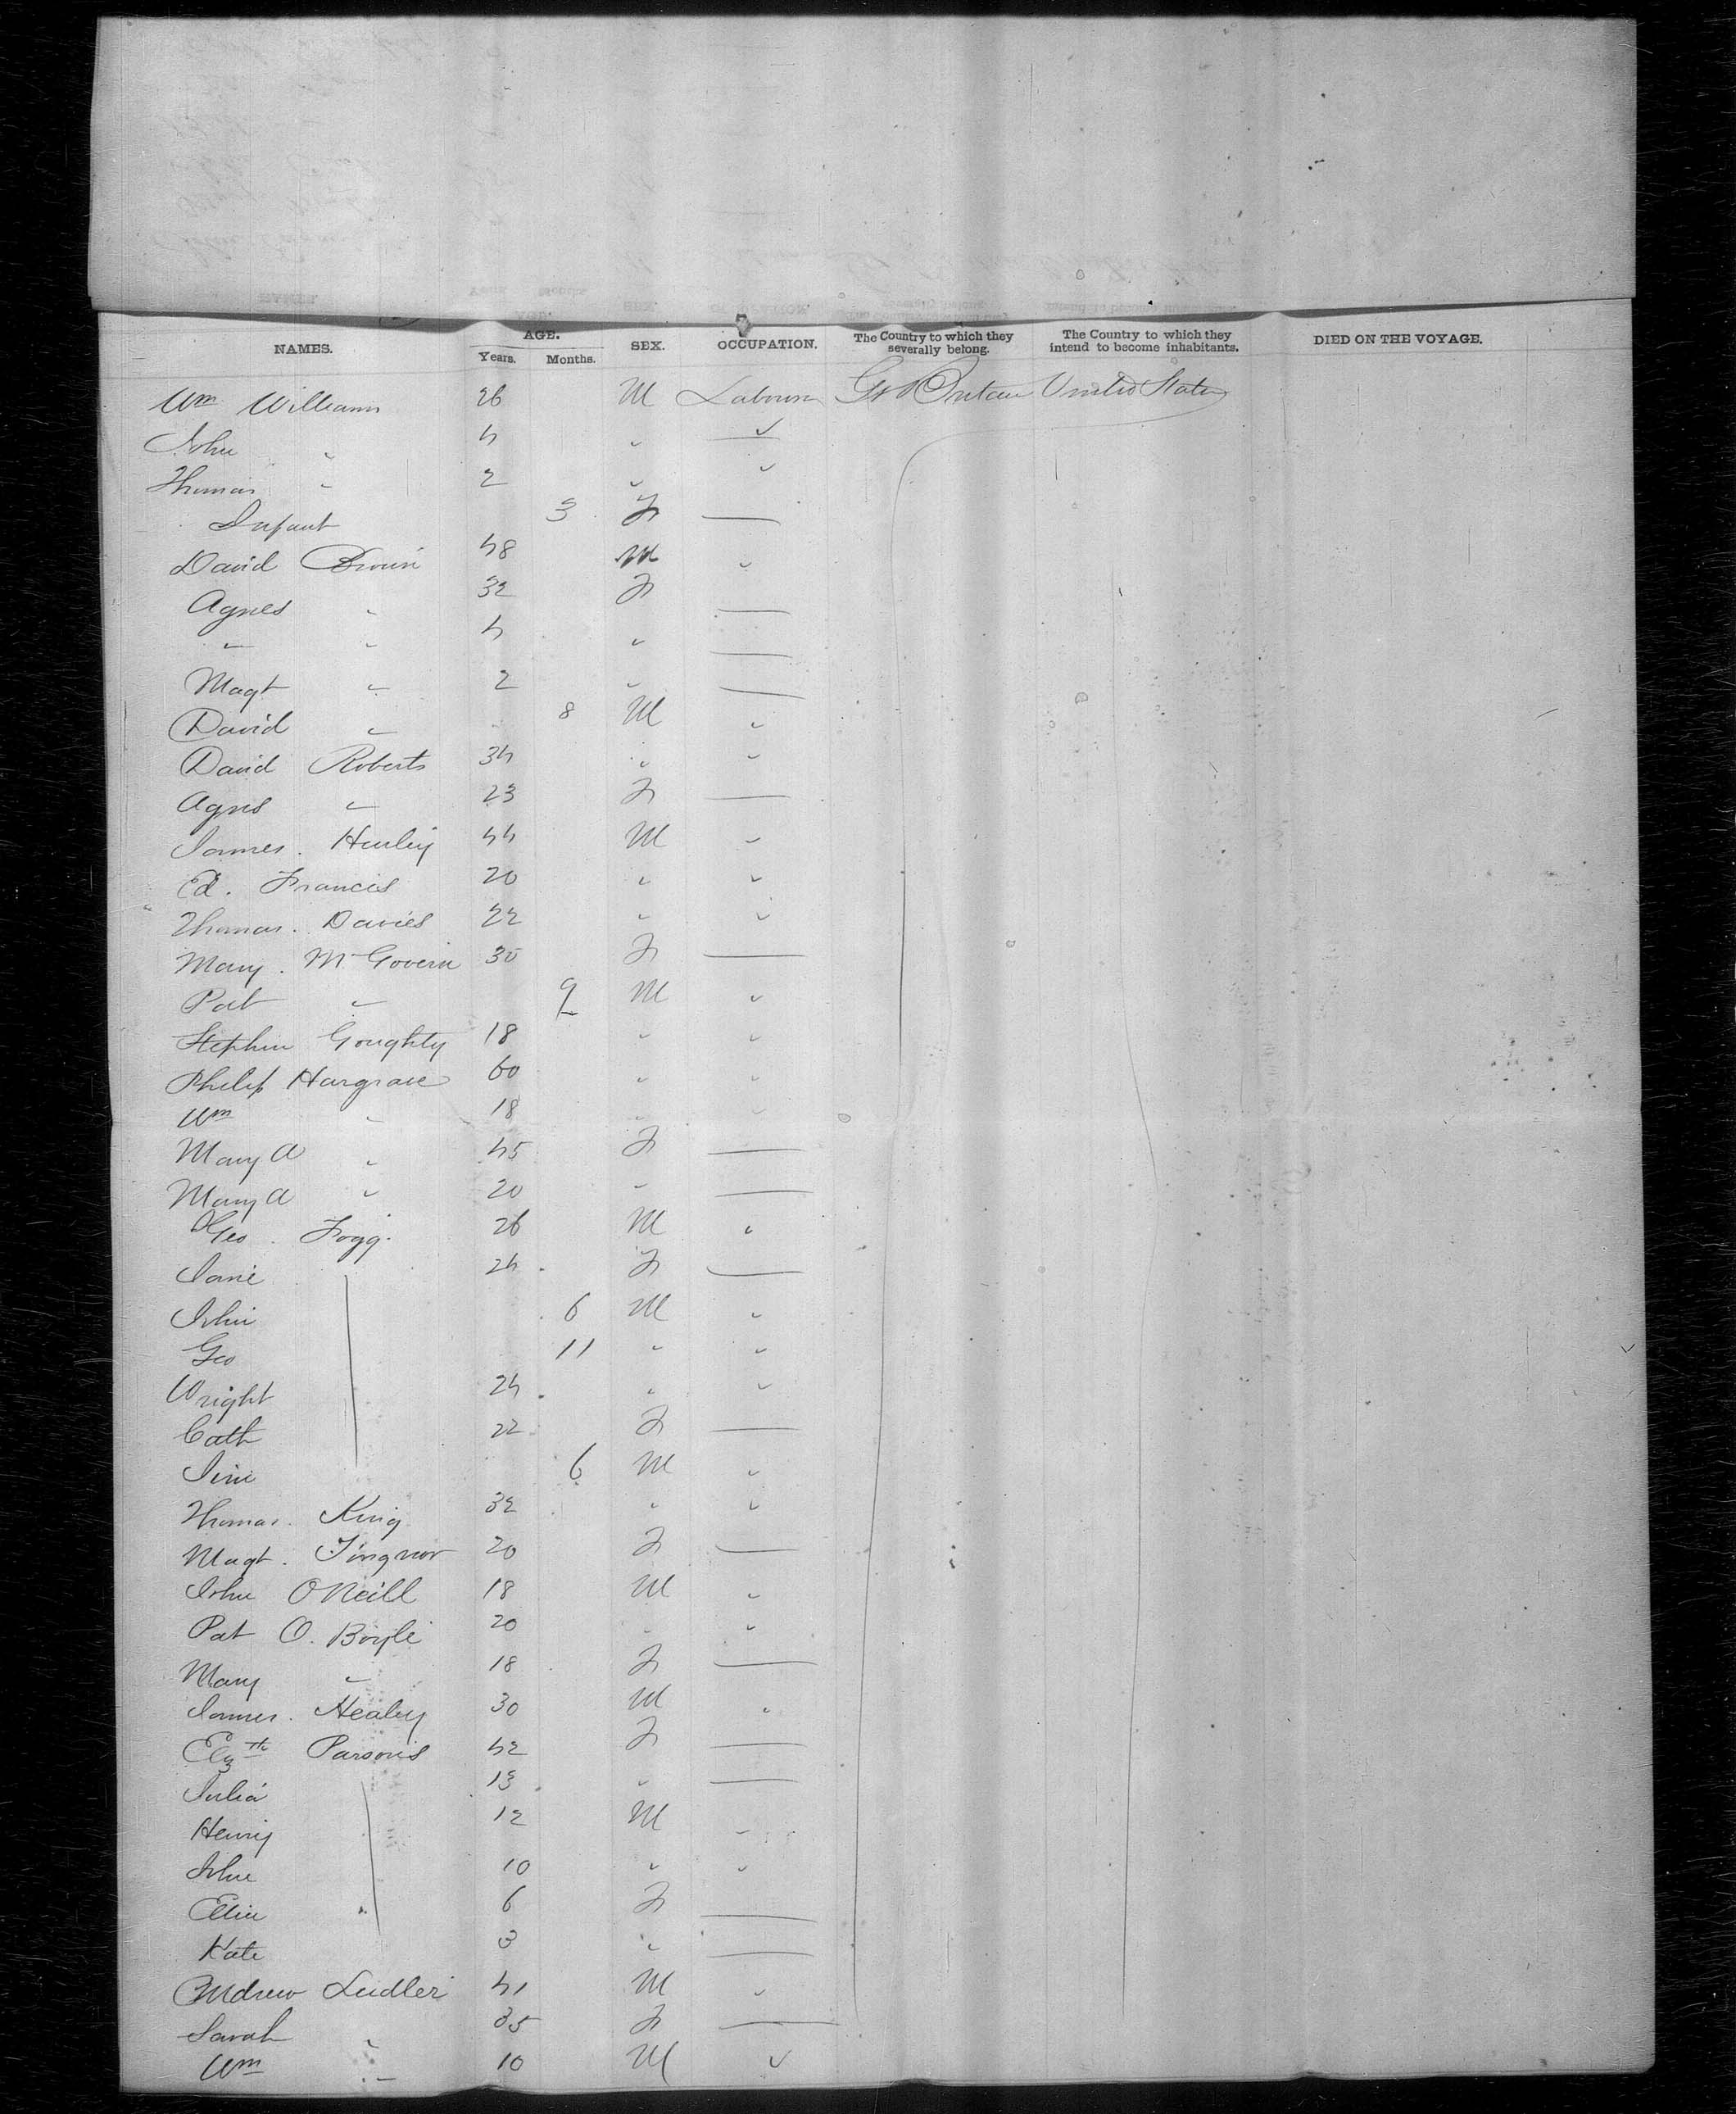 NAMES. AGE. Years. Months. SEX. OCCUPATION. The Country to which they severally belong. The Country to which they intend to become inhabitants. DIED ON THE VOYAGE.
Wm Williams 26 M Labourer Gt Britain United States
John " 4 " "
Thomas " 2 " "
Infant 3 F —
David Brown 48 M "
Agnes " 32 F —
" " 4 " —
Magt " 2 " —
David " 8 M "
David Roberts 34 " "
Agnes " 23 F —
James Hurley 44 M "
Ed. Francis 20 " "
Thomas Davies 22 " "
Mary McGovern 30 F —
Pat " 9 M "
Stephen Goughty 18 " "
Philip Hargrave 60 " "
Wm " 18 " "
Mary A " 45 F —
Mary A " 20 " —
Geo. Fogg 26 M "
Jane 24 F —
John 6 M "
Geo 11 " "
Wright 24 " "
Cath 22 F —
Jim 6 M "
Thomas King 32 " "
Magt. 20 F —
John O'Neill 18 M "
Pat O. Boyle 20 " "
Mary " 18 F —
James Healey 30 M "
Elzth Parsons 42 F —
Julia 13 " —
Henry 12 M "
John 10 " "
Ellen 6 F —
Kate 3 " —
Andrew Leidler 41 M "
Sarah " 35 F —
Wm " 10 M "